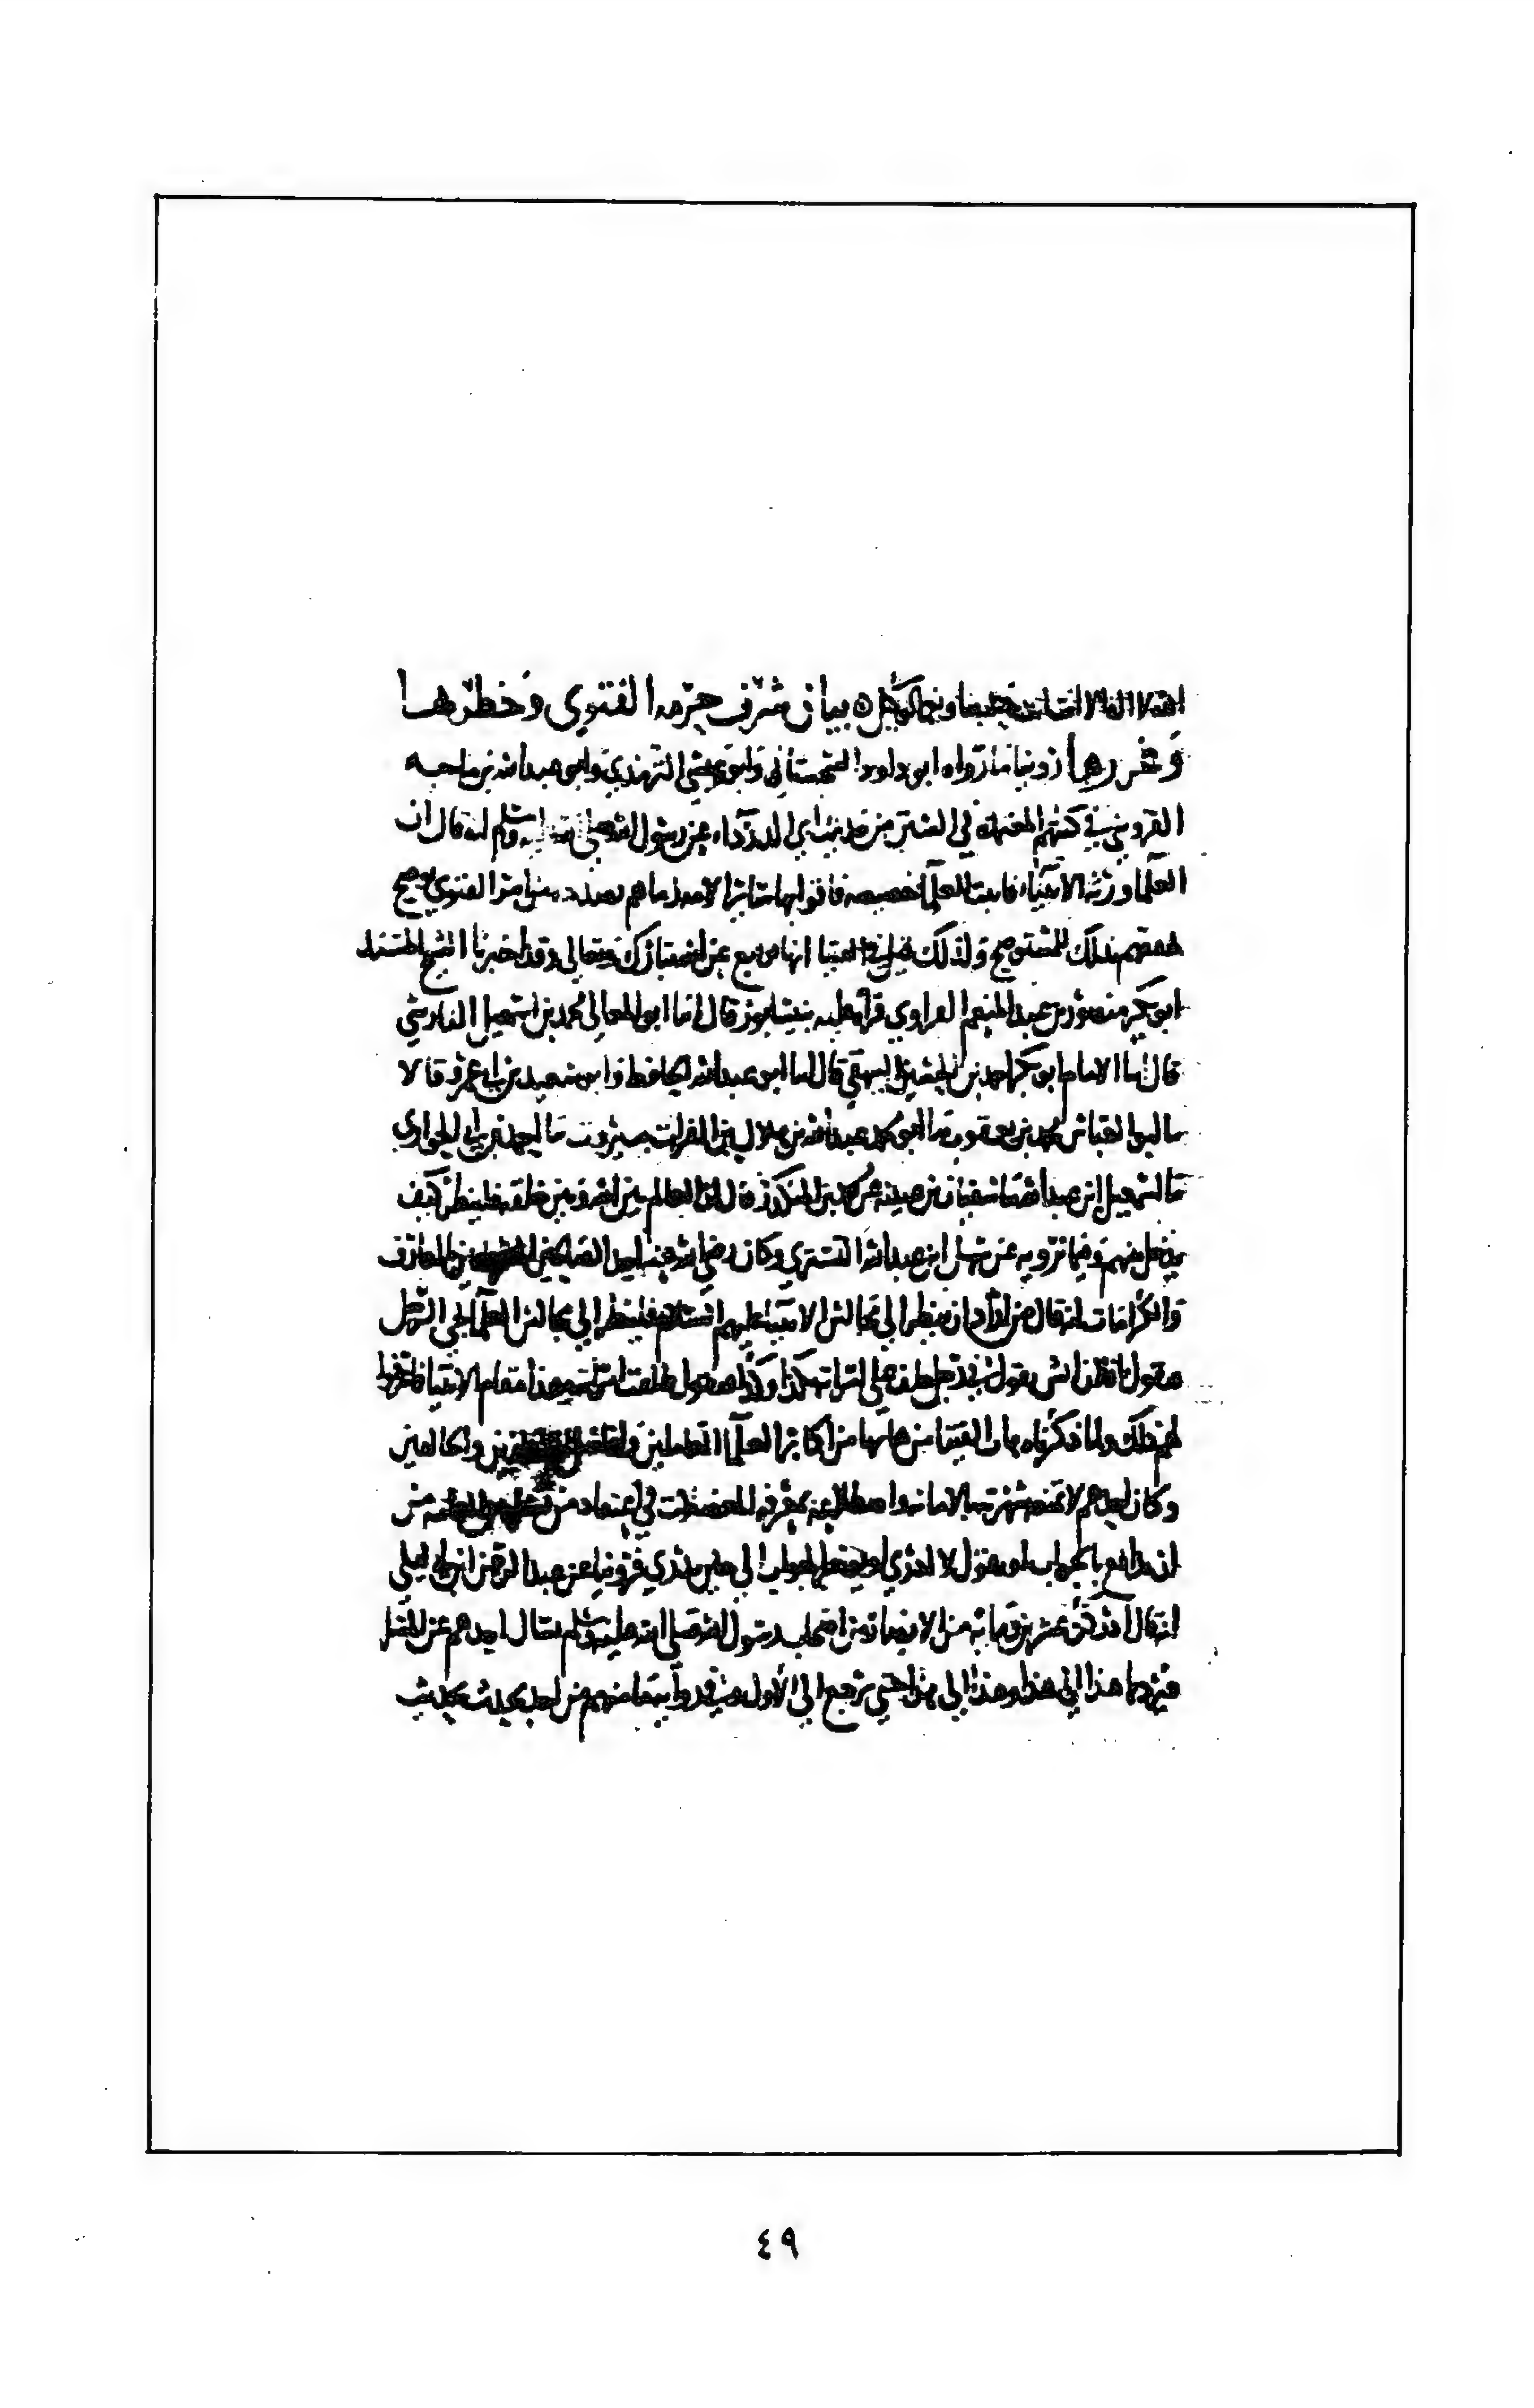 بيان شرف حرمة الفتوى وخطرها
وغررها روينا ما رواه ابو داود السجستاني وابو عيسى الترمذي وابو عبدالله بن ماجه
القزويني في كتبهم المعتمدة في السنن من حديث ابي الدرداء عن رسول الله صلى الله عليه وسلم انه قال ان
العلما ورثة الانبياء فاثبت للعلما خصيصة فاقوا بها سائر الامة وما هم بصدده من امر الفتوى يوضح
تحققهم بذلك للمستوضح ولذلك قيل في الفتيا انها توقيع عن الله تبارك وتعالى وقد اخبرنا الشيخ المسند
ابو بكر منصور بن عبد المنعم الفراوي قراة عليه بنيسابور قال انا ابو المعالي محمد بن اسمعيل الفارسي
قال انا الامام ابو بكر احمد بن الحسين البيهقي قال انا ابو عبدالله الحافظ وابو سعيد بن ابي عمرو قالا
نا ابو العباس محمد بن يعقوب نا ابو محمد عبدالله بن هلال بن الفرات ببيروت نا احمد بن ابي الحواري
نا اسمعيل ابن عبدالله نا سفيان بن عيينة عن محمد بن المنكدر قال ان العالم بين الله وبين خلقه فلينظر كيف
يدخل بينهم وفيما نرويه عن سهل ابن عبدالله التستري وكان رضي الله عنه احد الصالحين المعارف
والكرامات انه قال من اراد ان ينظر الى مجالس الانبياء عليهم السلام فلينظر الى مجالس العلما يجي الرجل
فيقول يا فلان ايش تقول في رجل حلف على امراته بكذا وكذا فيقول طلقت امراته وهذا مقام الانبيا فاعرفوا
لهم ذلك ولما ذكرناه هاب الفتيا من هابها من اكابر العلما العاملين وافاضل والخالفين
وكان احدهم لا تمنعه شهرته بالامانة واضطلاعه بمعرفة المعضلات في اعتقاد من من
ان يدافع بالجواب او يقول لا ادري او يؤخر الجواب الى حين يدري فروينا عن عبد الرحمن ابن ابي ليلى
انه قال ادركت عشرين ومائة من الانصار من اصحاب رسول الله صلى الله عليه وسلم يسال احدهم عن المسالة
فيردها هذا الى هذا وهذا الى هذا حتى ترجع الى الاول وفي رواية ما منهم من احد يحدث بحديث
٤٩